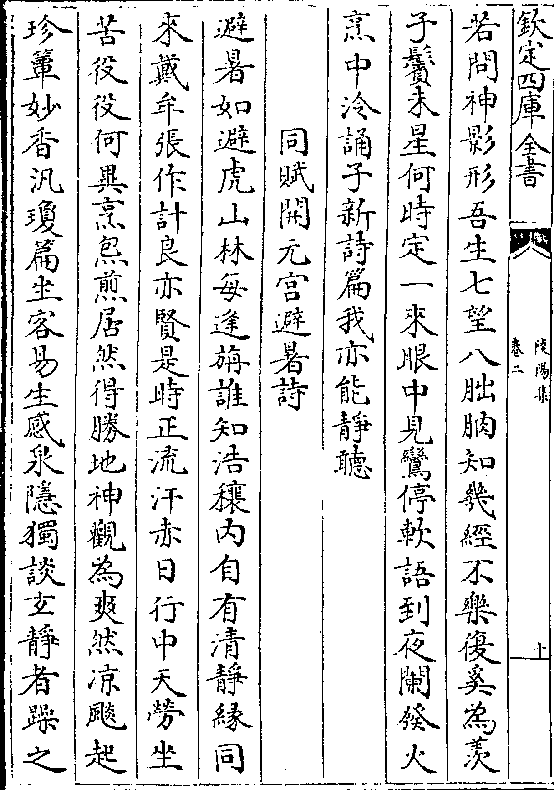 欽定四庫全書
陵陽集
卷二
十
若問神影形吾生七望八朏朒知幾經不樂復奚為羡
子鬢未星何時定一來眼中見鸞停軟語到夜闌發火
烹中泠誦子新詩篇我亦能靜聽
同賦開元宫避暑詩
避暑如避虎山林每逢旃誰知浩穰内自有清靜緣同
來戴牟張作計良亦賢是時正流汗赤日行中天勞坐
苦役役何異烹炰煎居然得勝地神觀為爽然凉飈起
珍簟妙香汎瓊篇坐客易生感泉隱獨談玄靜者躁之